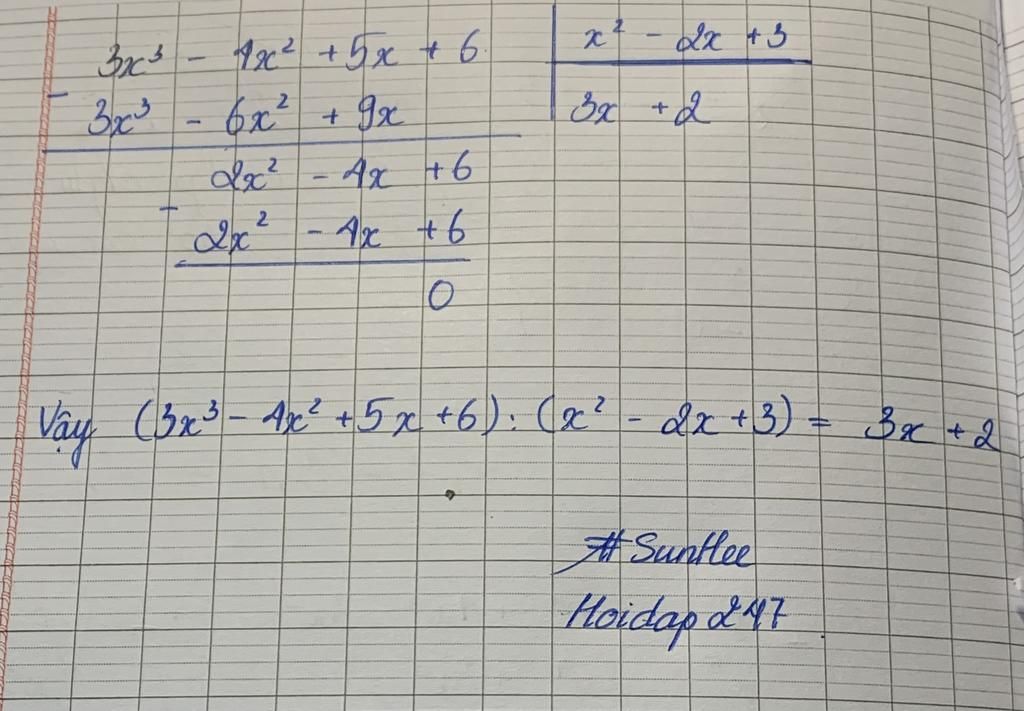 3x³ - 4x² + 5x + 6 | x² - 2x + 3
- 3x³ - 6x² + 9x | 3x + 2
2x² - 4x + 6
- 2x² - 4x + 6
0
Vậy (3x³ - 4x² + 5x + 6) : (x² - 2x + 3) = 3x + 2
#SunHee
Hoidap247